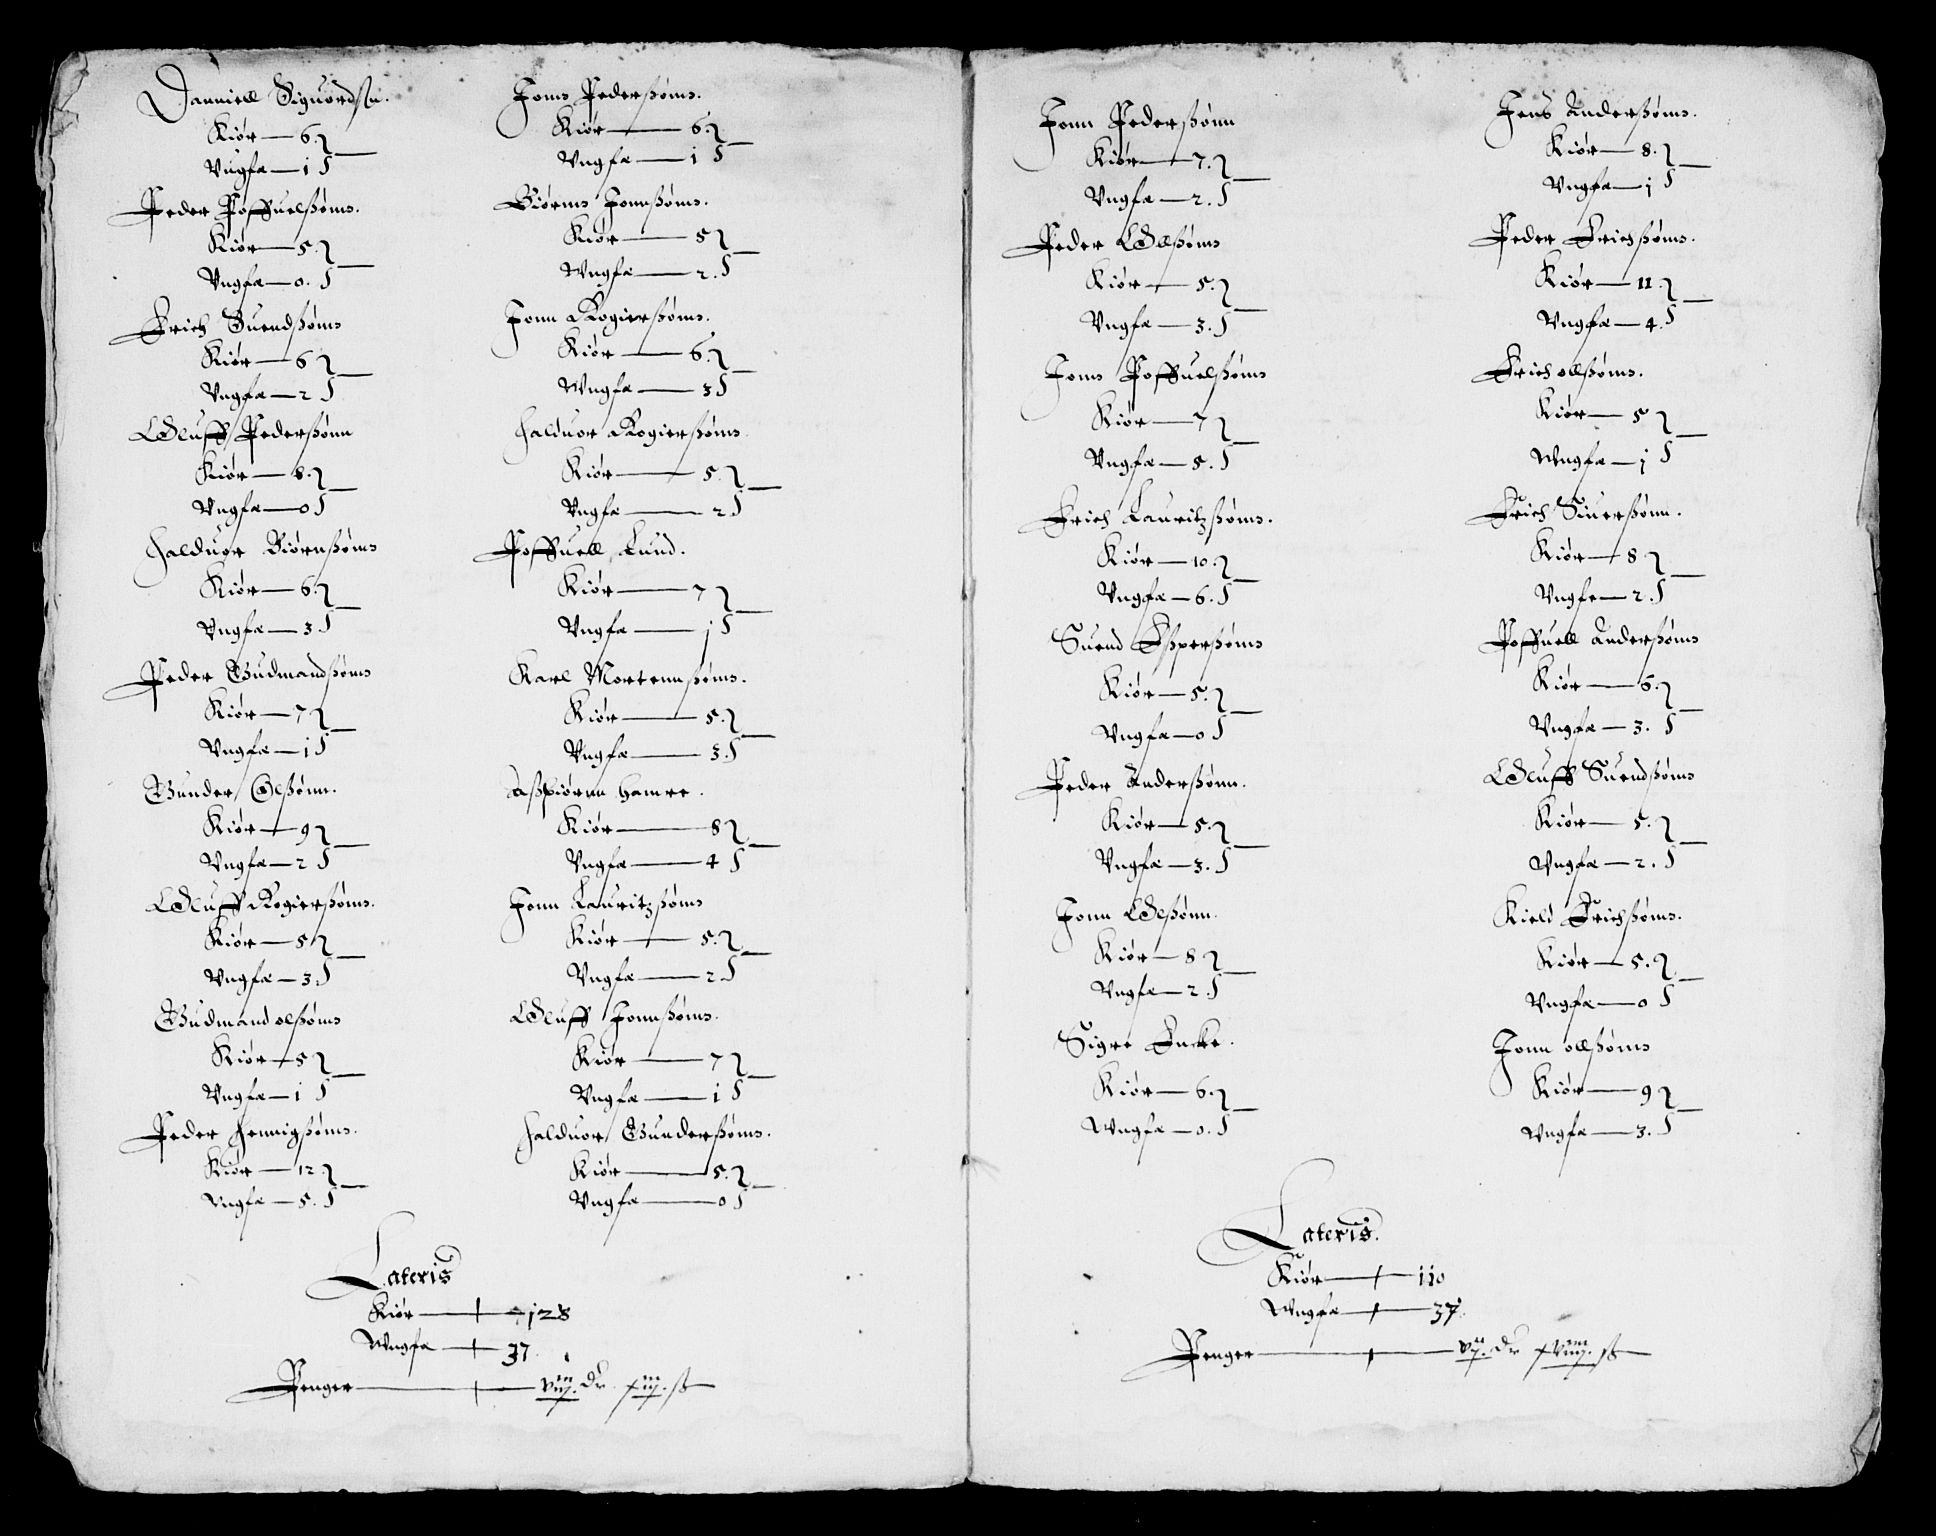 Danniell Siguordsn.
Kiør — 6.
Vngfæ — 1
Peder Poffuelssøns.
Kiør — 5.
Vngfæ — 0.
Erich Suendssøns
Kiør — 6
Vngfæ — 2
Oluff Pederssønn
Kiør — 8.
Vngfæ — 0
Halduor Biørnssøns
Kiør — 6.
Vngfæ — 3.
Peder Gudmandssøns
Kiør — 7
Vngfæ — 1
Gunder Olssønn.
Kiør — 9
Vngfæ — 2
Oluff Rogierssøns.
Kiør — 5
Vngfæ — 3.
Gudmand olssøns
Kiør — 5
Vngfæ — 1
Peder Hennigssøns.
Kiør — 12.
Vngfæ — 5.
Jons Pederssøns.
Kiør — 6.
Vngfæ — 1
Biørns Jonnssøns.
Kiør — 5
Wngfæ — 2.
Jonn Rogierssøns.
Kiør — 6.
Wngfæ — 3
Halduor Rogierssøns
Kiør — 5.
Vngfæ — 2
Poffuell Lund.
Kiør — 7
Vngfæ — j
Karl Mortennssøns.
Kiør — 5.
Vngfæ — 3.
Assbiørnn hamre.
Kiør — 8
Vngfæ — 4
Jonn Lauritzssøns
Kiør — 5.
Vngfæ — 2
Oluff Jonnssøns.
Kiør — 7
Vngfæ — 1
Halduor Gunderssøns.
Kiør — 5.
Vngfæ — 0
Lateris
Kiør — 128
Wngfæ — 37
Penger —
Jonn Pederssønn
Kiør — 7.
Vngfæ — 2.
Peder Ollssøns
Kiør — 5.
Vngfæ — 3.
Jons Poffuelssøns
Kiør — 7
Vngfæ — 5.
Erich Lauritzssøns.
Kiør — 10.
Vngfæ — 6.
Suend Esperssøns
Kiør — 5.
Vngfæ — 0
Peder Anderssønn.
Kiør — 5.
Vngfæ — 3.
Jonn Olssønn.
Kiør — 8
Vngfæ — 2.
Sigre Encke.
Kiør — 6.
Wngfæ — 0.
Jens Anderssøns.
Kiør — 8.
Vngfæ — j
Peder Erichssøns.
Kiør — 11.
Vngfæ — 4.
Erich ollssøns.
Kiør — 5
Wngfæ — j
Erich Siuerssønn.
Kiør — 8
Vngfe — 2.
Poffuell Anderssøns
Kiør — 6.
Vngfæ — 3.
Oluff Suendssøns
Kiør — 5.
Vngfæ — 2.
Kield Erichssøns.
Kiør — 5.
Vngfæ — 0
Jonn ollssøns
Kiør — 9
Vngfæ — 3.
Lateris.
Kiør — 110
Wngfæ — 37.
Penger —